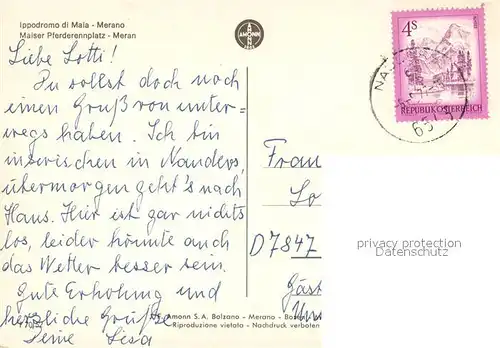 Ippodromo di Maia - Merano
Maiser Pferderennplatz - Meran
AMONN
4S
REPUBLIK ÖSTERREICH
Liebe Lotti!
Du sollst doch noch
einen Gruß von unter=
wegs haben. Ich bin
inzwischen in Nauders,
übermorgen geht's nach
Haus. Hier ist gar nichts
los, leider könnte auch
das Wetter besser sein.
Gute Erholung und
herzliche Grüße
Deine Lisa
Frau
Lo
D7847
Gäst
privacy protection
Datenschutz
Amonn S.A. Bolzano - Merano - Bozen
Riproduzione vietata - Nachdruck verboten